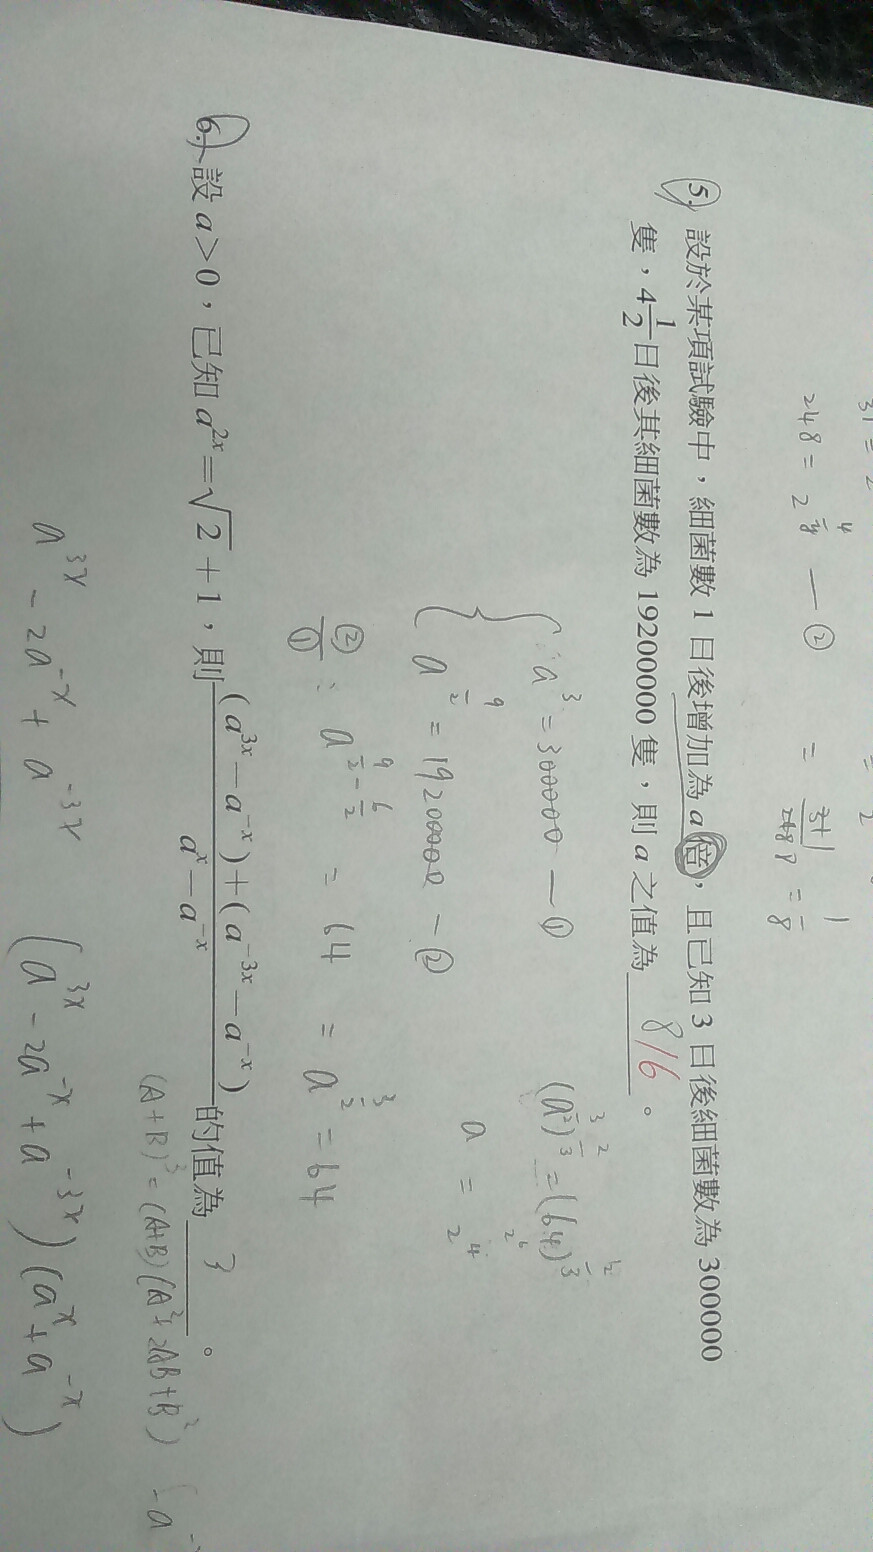 31 = 2
248 = 2 — ②
= 31/248 = 1/8
⑤. 設於某項試驗中，細菌數 1 日後增加為 a 倍，且已知 3 日後細菌數為 300000
隻，4 1/2 日後其細菌數為 19200000 隻，則 a 之值為 8/16 。
a³ = 300000 — ①
a^(9/2) = 19200000 — ②
②/① : a^(9/2 - 6/2) = 64 = a^(3/2) = 64
(a^(3/2))^(2/3) = (64)^(2/3)
2⁶
a = 2⁴
6. 設 a>0，已知 a^(2x)=√2+1，則 ((a^(3x)−a^(−x))+(a^(−3x)−a^(−x)))/(a^x−a^(−x)) 的值為 3 。
(A+B)³ = (A+B)(A²+2AB+B²)
a^(3x) − 2a^(−x) + a^(−3x)
(a^(3x) − 2a^(−x) + a^(−3x))(a^x + a^(−x))